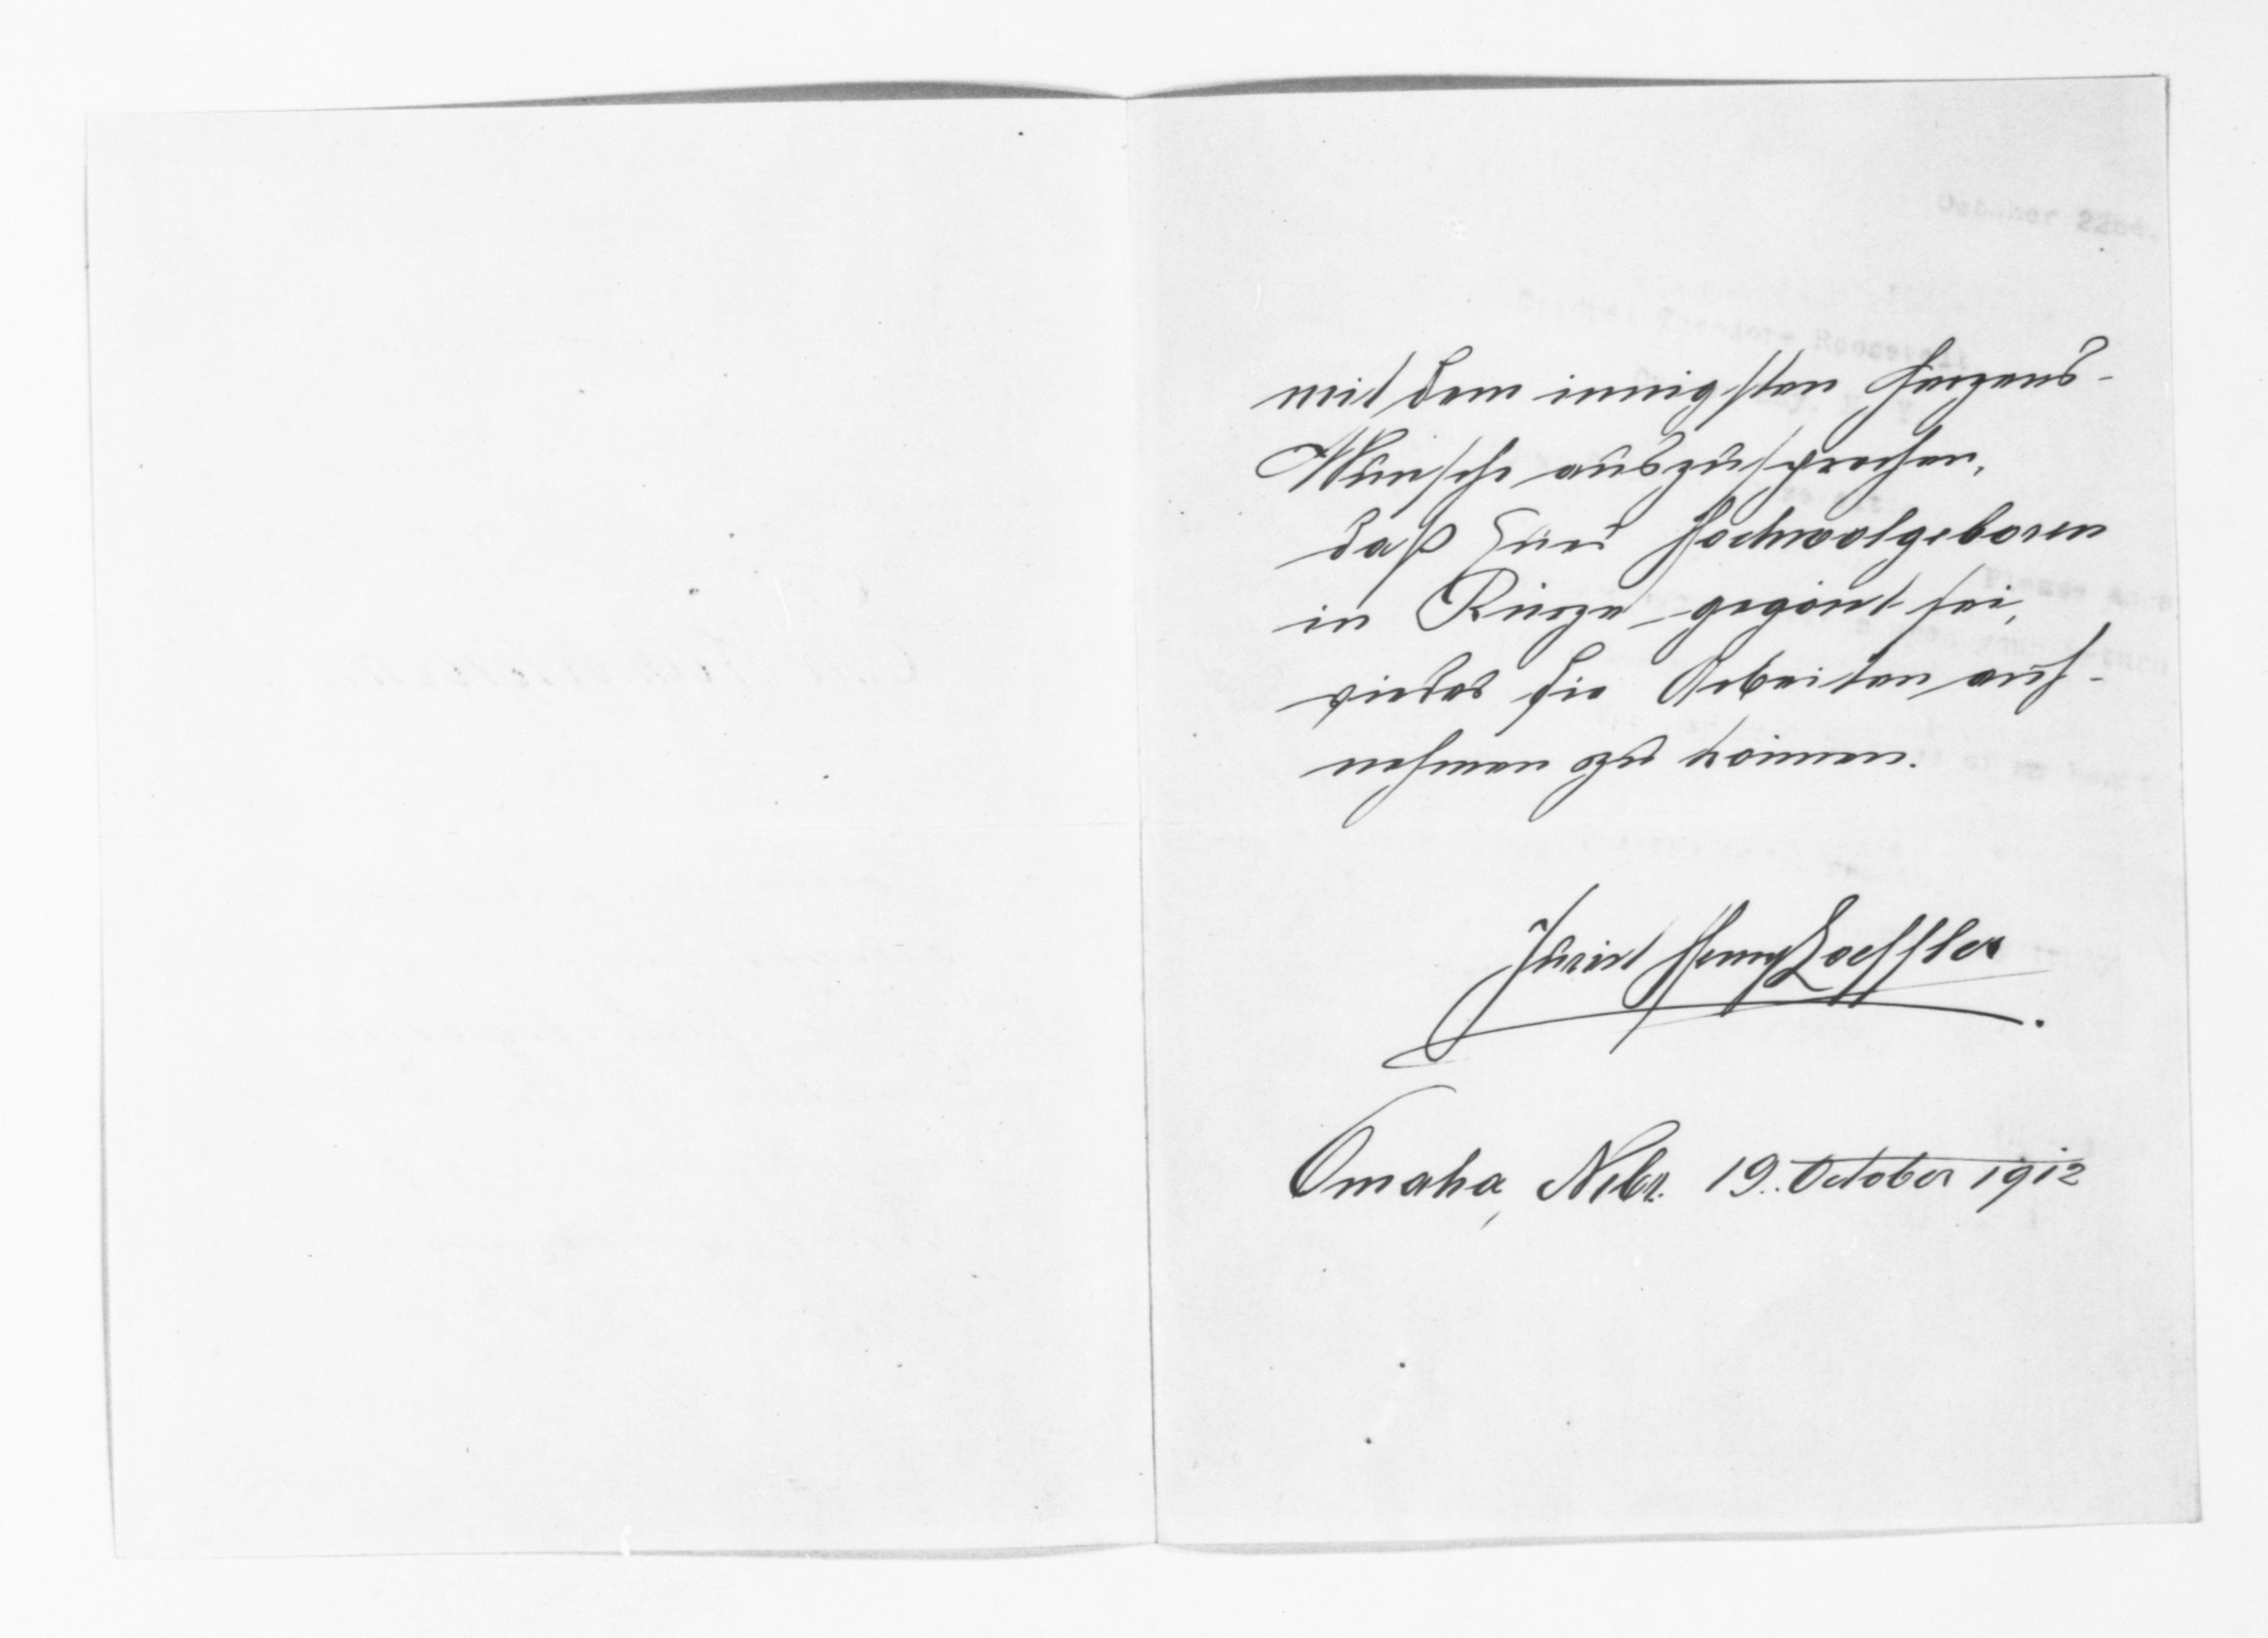 mit dem innigsten Herzens-
Wunsche auszusprechen,
daß Euer Hochwolgeboren
in Kürze gegönt sei,
wieder die Arbeiten auf-
nehmen zu können.
Jurist Henry Loeffler
Omaha, Nebr. 19. October 1912
October 22nd.
Theodore Roosevelt